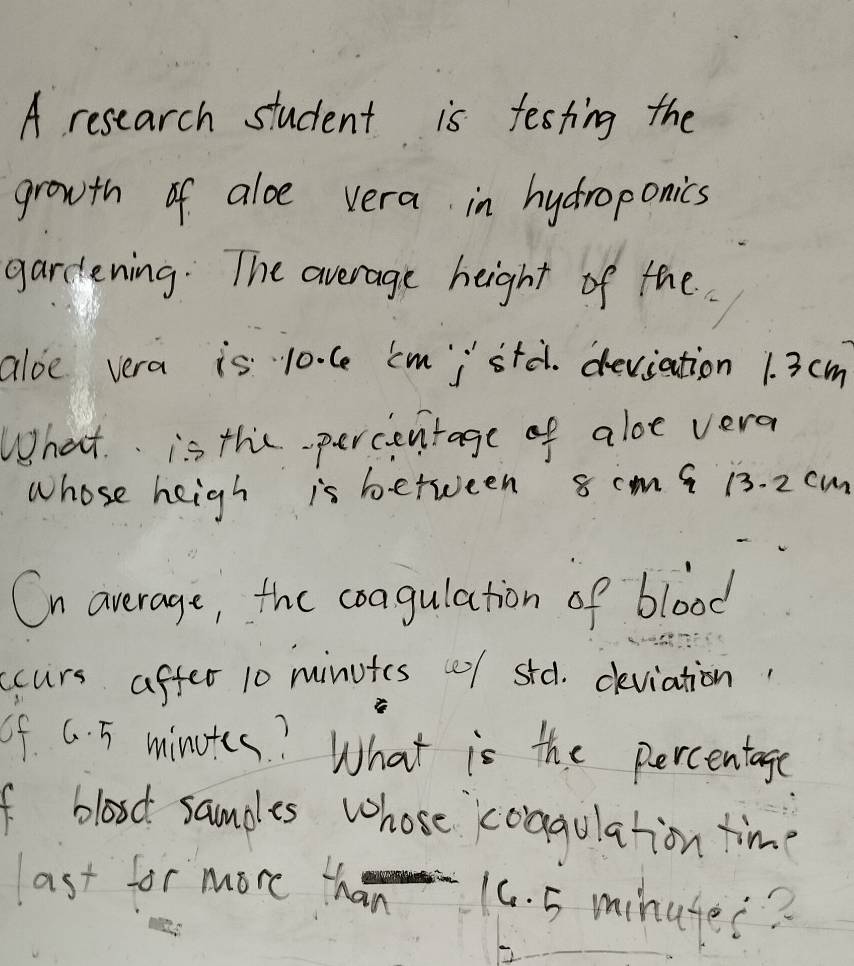 A research student is testing the
growth of aloe vera in hydroponics
gardening. The average height of the
aloe vera is 10.6 cm; std. deviation 1.3 cm
What is the percentage of aloe vera
whose heigh is between 8 cm & 13.2 cm
On average, the coagulation of blood
ccurs after 10 minutes w/ std. deviation
of 6.5 minutes? What is the percentage
f blood samples whose koagulation time
last for more than 16.5 minutes?